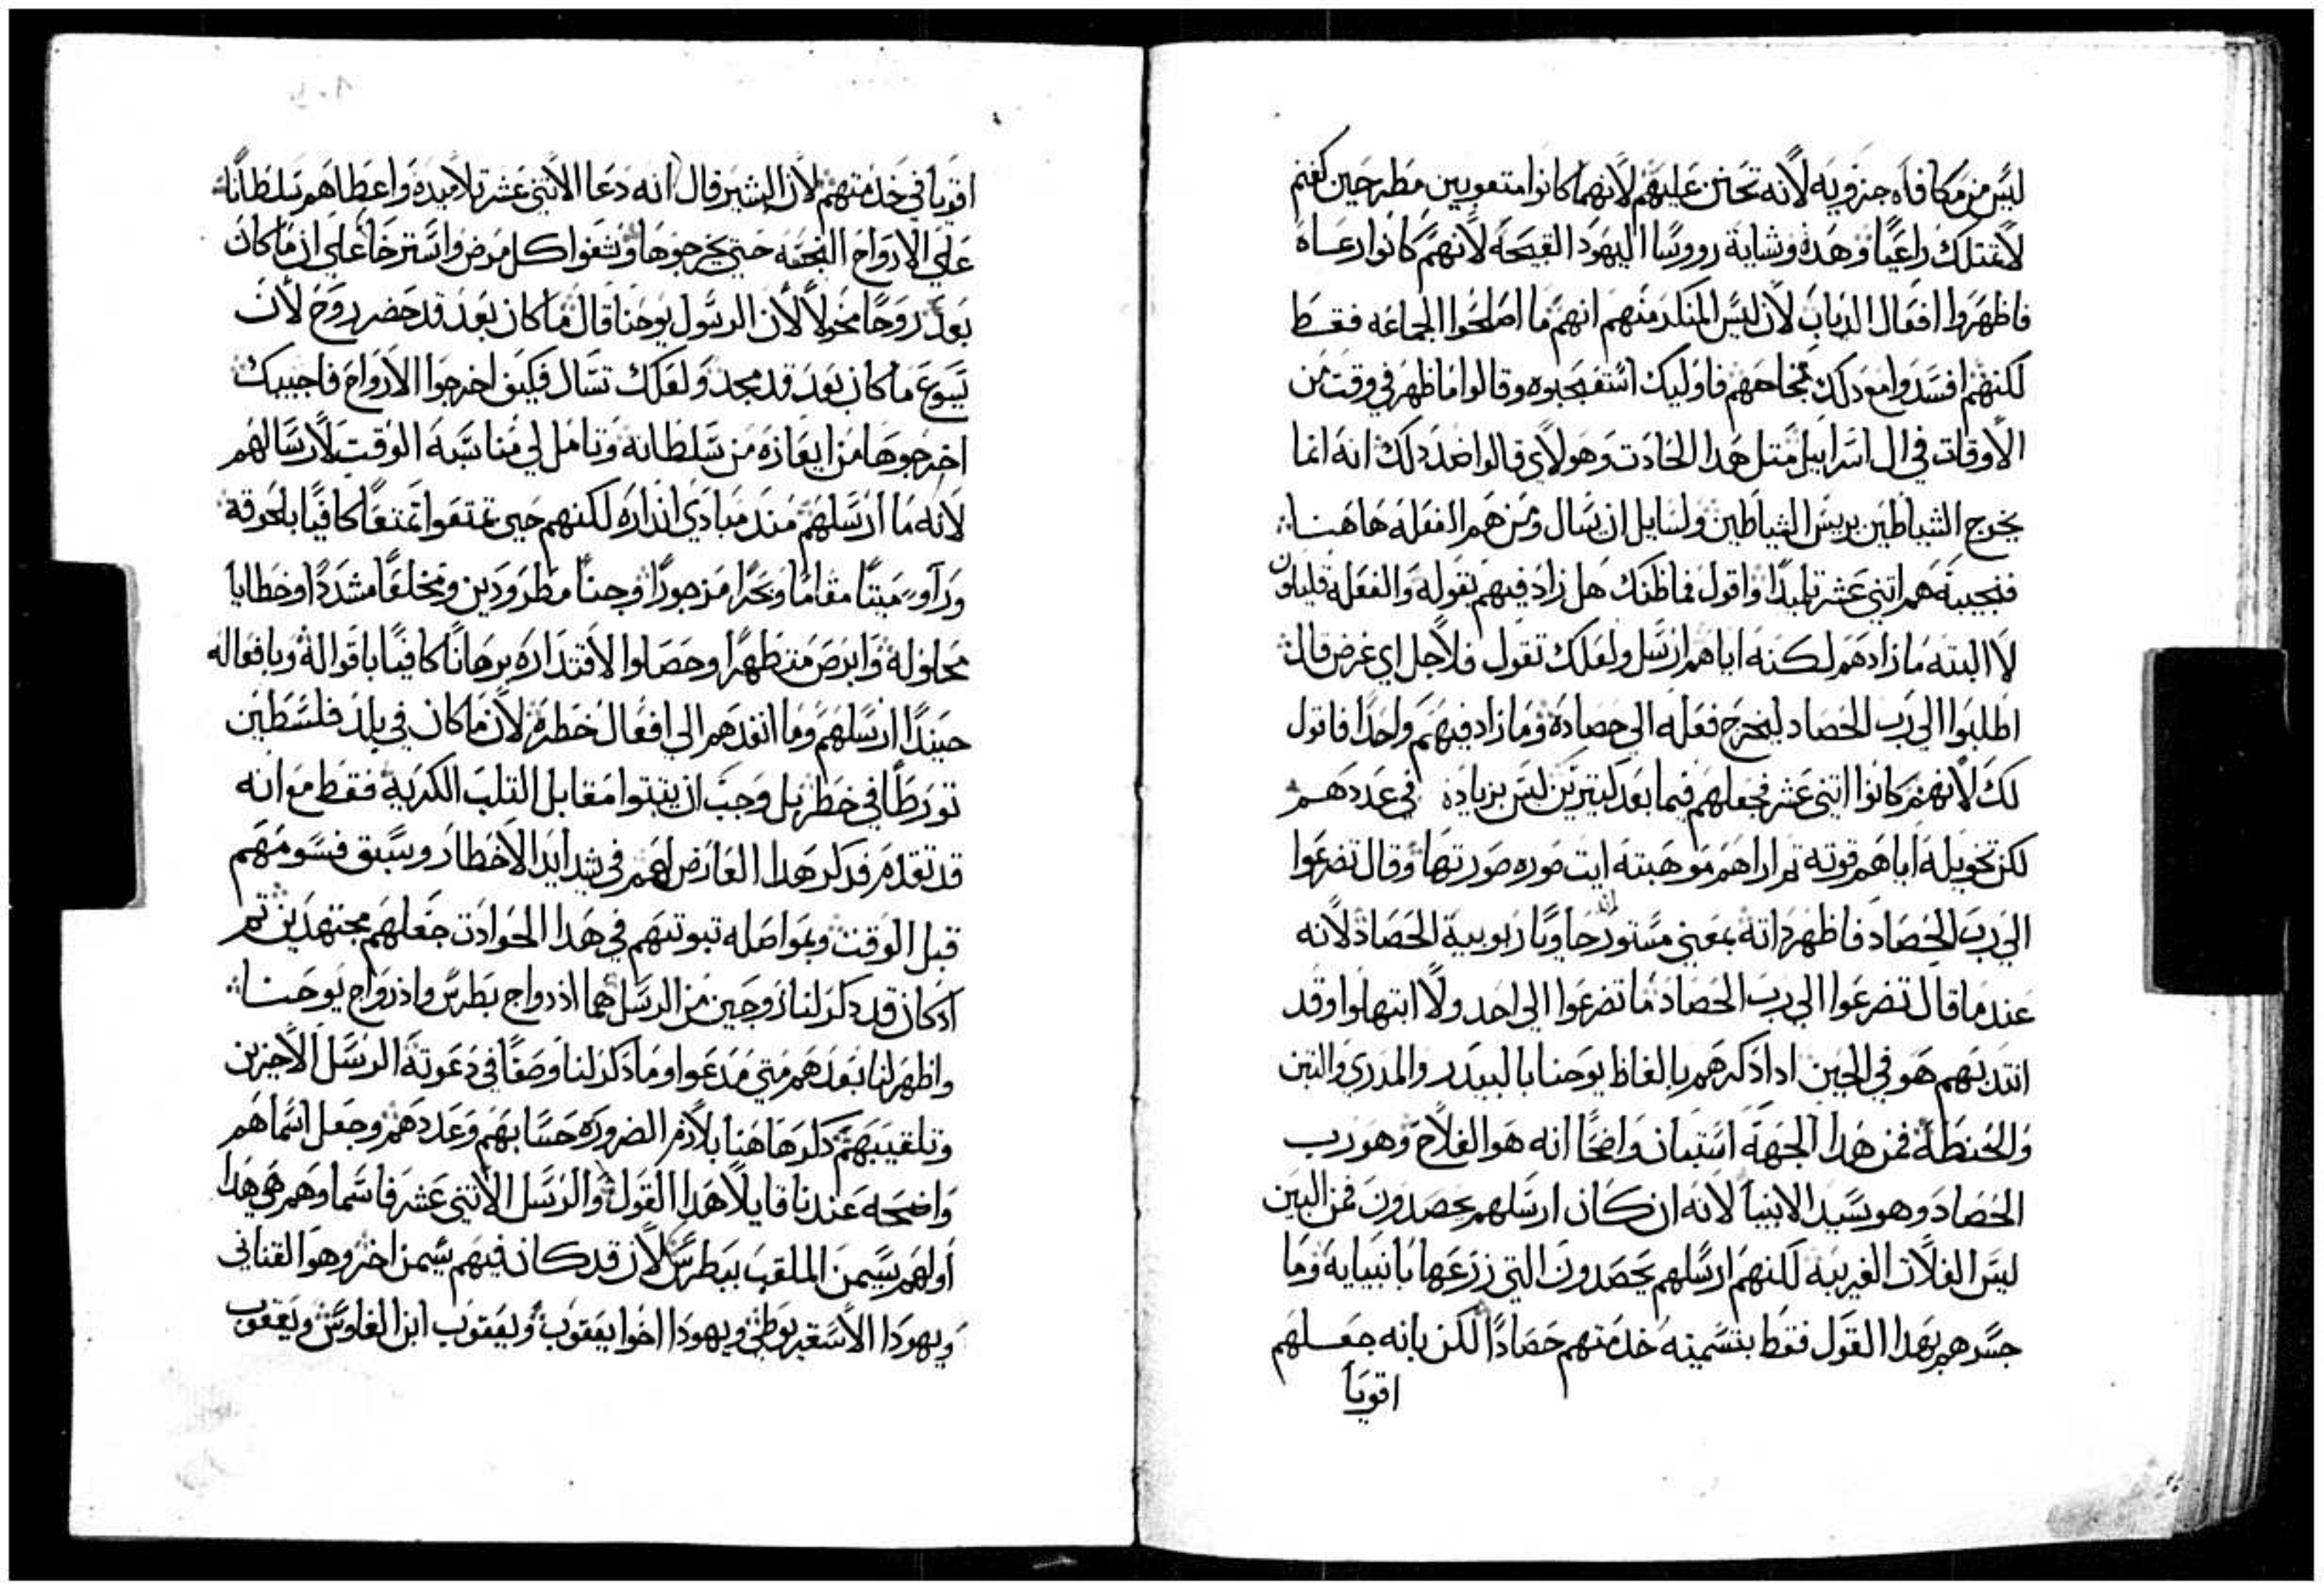 ليس من مكافاه جزويه لانه تحنن عليهم لانهما كانوا متعوبين مطرحين كغنم
لا تمتلك راعيا وهده وشاية رووسا اليهود القبيحة لانهم كانوا رعاه
فاظهروا افعال الدياب لان ليس المنكر منهم انهم ما اصلحوا الجماعه فقط
لكنهم افسدوا مع دلك نجاحهم فاوليك استعجبوه وقالوا ما ظهر في وقت من
الاوقات في ال اسراييل متل هدا الحادت وهولاي قالوا ضد دلك انه انما
يخرج الشياطين بريس الشياطين ولسايل ان يسال ومن هم الفعله هاهنا
فنجيبه هم اتني عشر تلميدا واقول فما ظنك هل زاد فيهم بقوله والفعلة قليلون
لا البته ما زادهم لكنه اياهم ارسل ولعلك تقول فلاجل اي غرض قال
اطلبوا الي رب الحصاد ليخرج فعله الي حصاده وما زاد فيهم واحدا فاقول
لك لانهم كانوا اتني عشر فجعلهم فيما بعد كتيرين ليس بزياده في عددهم
لكن تخويله اياهم قوته تم اراهم موهبته ايت صوره صورتها وقال تضرعوا
الي رب الحصاد فاظهر داته بمعني مستور حاويا ربوبية الحصاد لانه
عندما قال تضرعوا الي رب الحصاد ما تضرعوا الي احد ولا ابتهلوا وقد
انتدبهم هو في الحين ادا دكرهم بالفاظ يوحنا بالبيدر والمدري والتبن
والحنطة فمن هدا الجهة استبان واضحا انه هو الفلاح وهو رب
الحصاد وهو سيد الانبيا لانه ان كان ارسلهم يحصدون فمن البين
ليس الغلات الغريبه لكنهم ارسلهم يحصدون التي زرعها بانبيايه وما
جسرهم بهدا القول فقط بتسميته خدمتهم حصادا لكن بانه جعلهم
اقويا
اقويا في خدمتهم لان البشير قال انه دعا الاتني عشر تلاميده واعطاهم سلطانا
علي الارواح النجسه حتي يخرجوها وشفوا كل مرض واسترخا علي ان ما كان
بعد روحا مخولا لان الرسول يوحنا قال ما كان بعد قد حضر روح لان
يسوع ما كان بعد قد مجد ولعلك تسال فكيف اخرجوا الارواح فاجيبك
اخرجوها من ايعازه من سلطانه وتامل لي مناسبه الوقت لارسالهم
لانه ما ارسلهم مند مبادي انداره لكنهم حين تمتعوا تمتعا كافيا بلحوقه
وراو ميتا مقاما وبحرا مزجورا وجنا مطرودين ومخلعا مشددا وخطايا
محلوله وابرص متطهرا وحصلوا لاقتداره برهانا كافيا باقواله وبافعاله
حينيدا ارسلهم وما انفدهم الي افعال خطره لان ما كان في بلد فلسطين
تورطا في خطر بل وجب ان يتبتوا مقابل التلب الكريه فقط مع انه
قد تقدم فدكر هدا العارض لهم في شدايد الاخطار وسبق فسومهم
قبل الوقت وبمواصله تبوتهم في هدا الحوادت جعلهم مجتهدين تم
اد كان قد دكر لنا زوجين من الرسل هما ازدواج بطرس وازدواج يوحنا
واظهر لنا بعدهم متي مدعوا وما دكر لنا وصفا في دعوته الرسل الاخرين
وتلقيبهم دكر هاهنا بلازم الضروره حسابهم وعددهم وجعل اسماهم
واضحه عندنا قايلا هدا القول والرسل الاتني عشر فاسماوهم هي هدا
اولهم سيمن الملقب ببطرس لان قد كان فيهم سيمن اخر وهو القناني
ويهودا الاسخريوطي ويهودا اخوا يعقوب ويعقوب ابن الفاوس ويعقوب